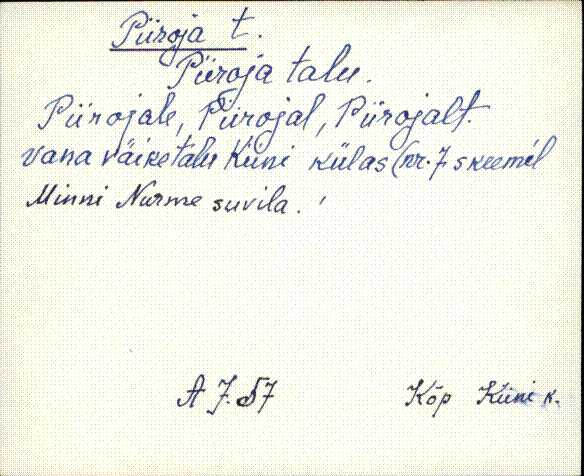 Piiroja t.
Piiroja talu.
Piirojale, Piirojal, Piirojalt.
Vana väiketalu Kiini külas (nr. 7 skeemil
Minni Nurme suvila.
A J. 57
Kõp Kiini k.